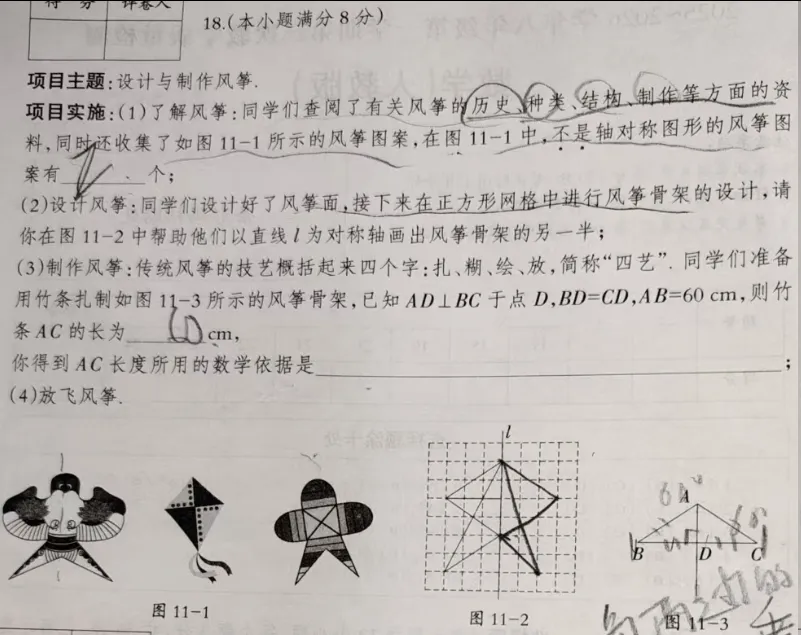 得 分 评卷人
18.(本小题满分8分)
项目主题:设计与制作风筝.
项目实施:(1)了解风筝:同学们查阅了有关风筝的历史、种类、结构、制作等方面的资
料,同时还收集了如图11-1所示的风筝图案,在图11-1中,不是轴对称图形的风筝图
案有______个;
(2)设计风筝:同学们设计好了风筝面,接下来在正方形网格中进行风筝骨架的设计,请
你在图11-2中帮助他们以直线l为对称轴画出风筝骨架的另一半;
(3)制作风筝:传统风筝的技艺概括起来四个字:扎、糊、绘、放,简称“四艺”.同学们准备
用竹条扎制如图11-3所示的风筝骨架,已知AD⊥BC于点D,BD=CD,AB=60 cm,则竹
条AC的长为 60 cm,
你得到AC长度所用的数学依据是______;
(4)放飞风筝.
l
A
B D C
图11-1
图11-2
图11-3